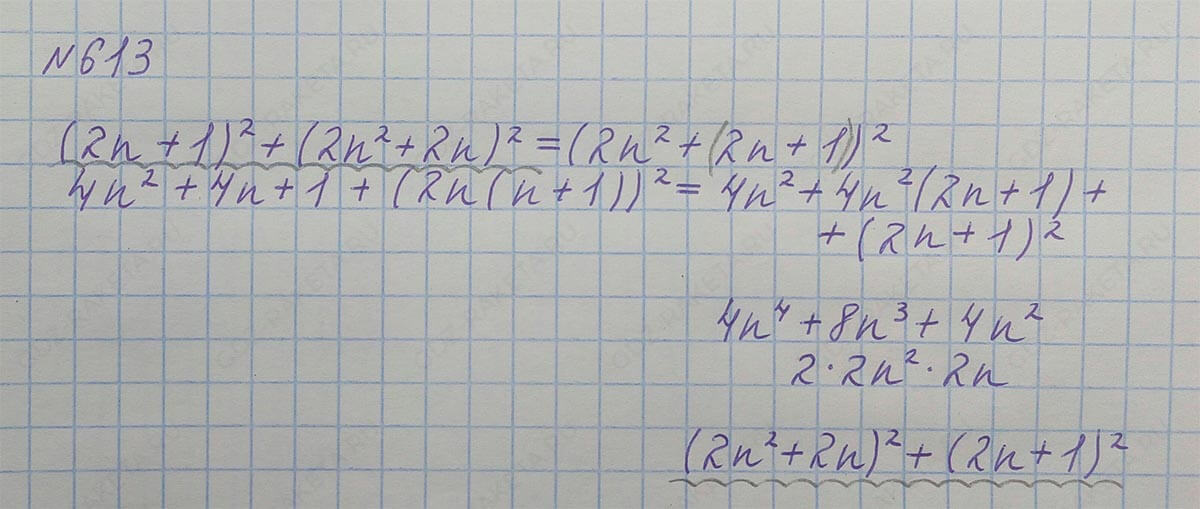 №613
(2n+1)²+(2n²+2n)²=(2n²+(2n+1))²
4n²+4n+1+(2n(n+1))²=4n²+4n²(2n+1)+
+(2n+1)²
4n⁴+8n³+4n²
2·2n²·2n
(2n²+2n)²+(2n+1)²